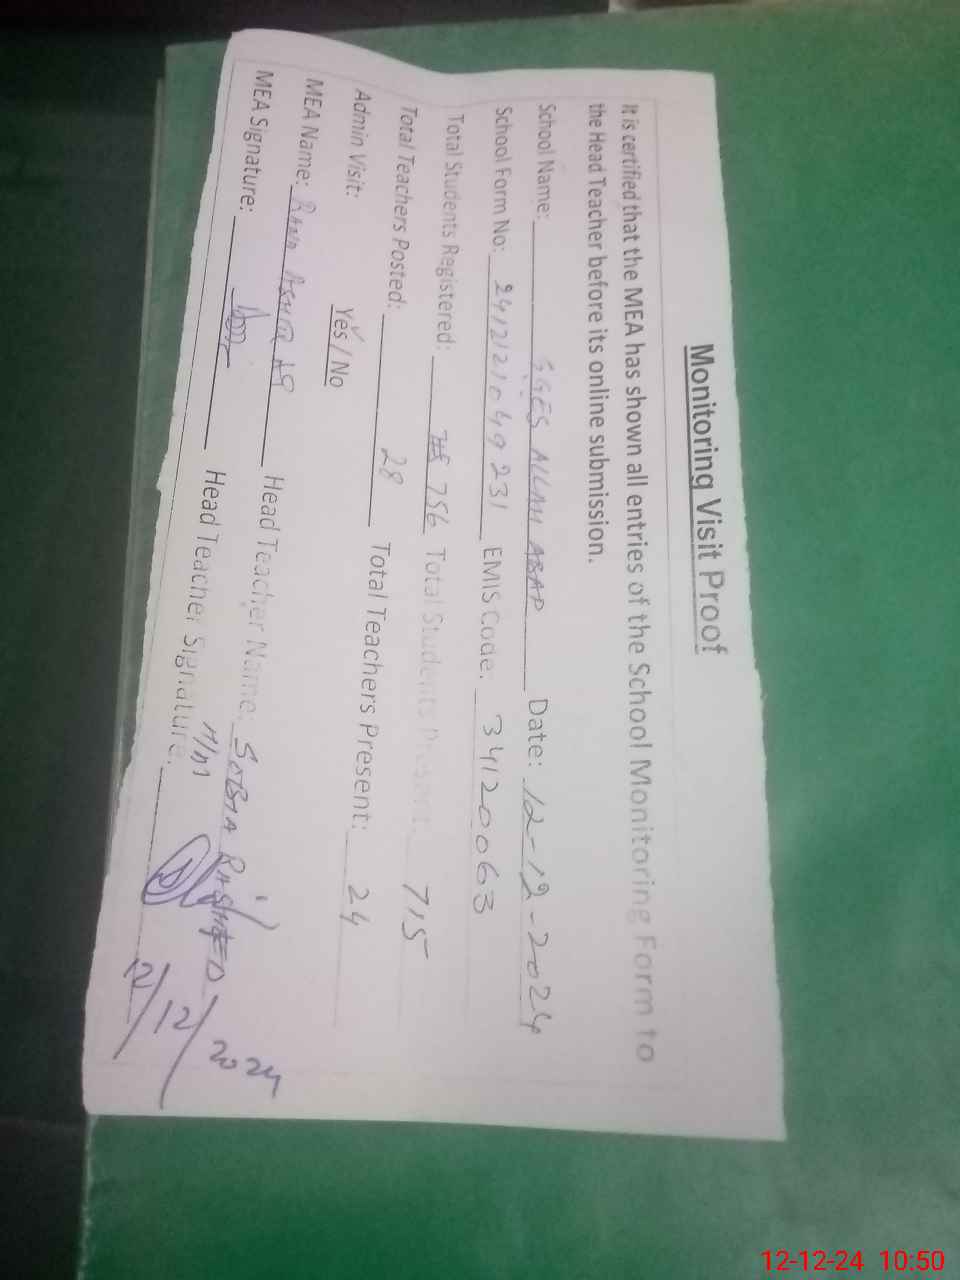 Monitoring Visit Proof
It is certified that the MEA has shown all entries of the School Monitoring Form to
the Head Teacher before its online submission.
School Name: GGES ALLAH ABAD Date: 12-12-2024
School Form No: 2412121049231 EMIS Code: 34120063
Total Students Registered: 756 Total Students Present: 715
Total Teachers Posted: 28 Total Teachers Present: 24
Admin Visit: Yes / No
MEA Name: RANA Head Teacher Name: SOBIA RASHEED
MEA Signature: Head Teacher Signature:
12/12/2024
12-12-24 10:50